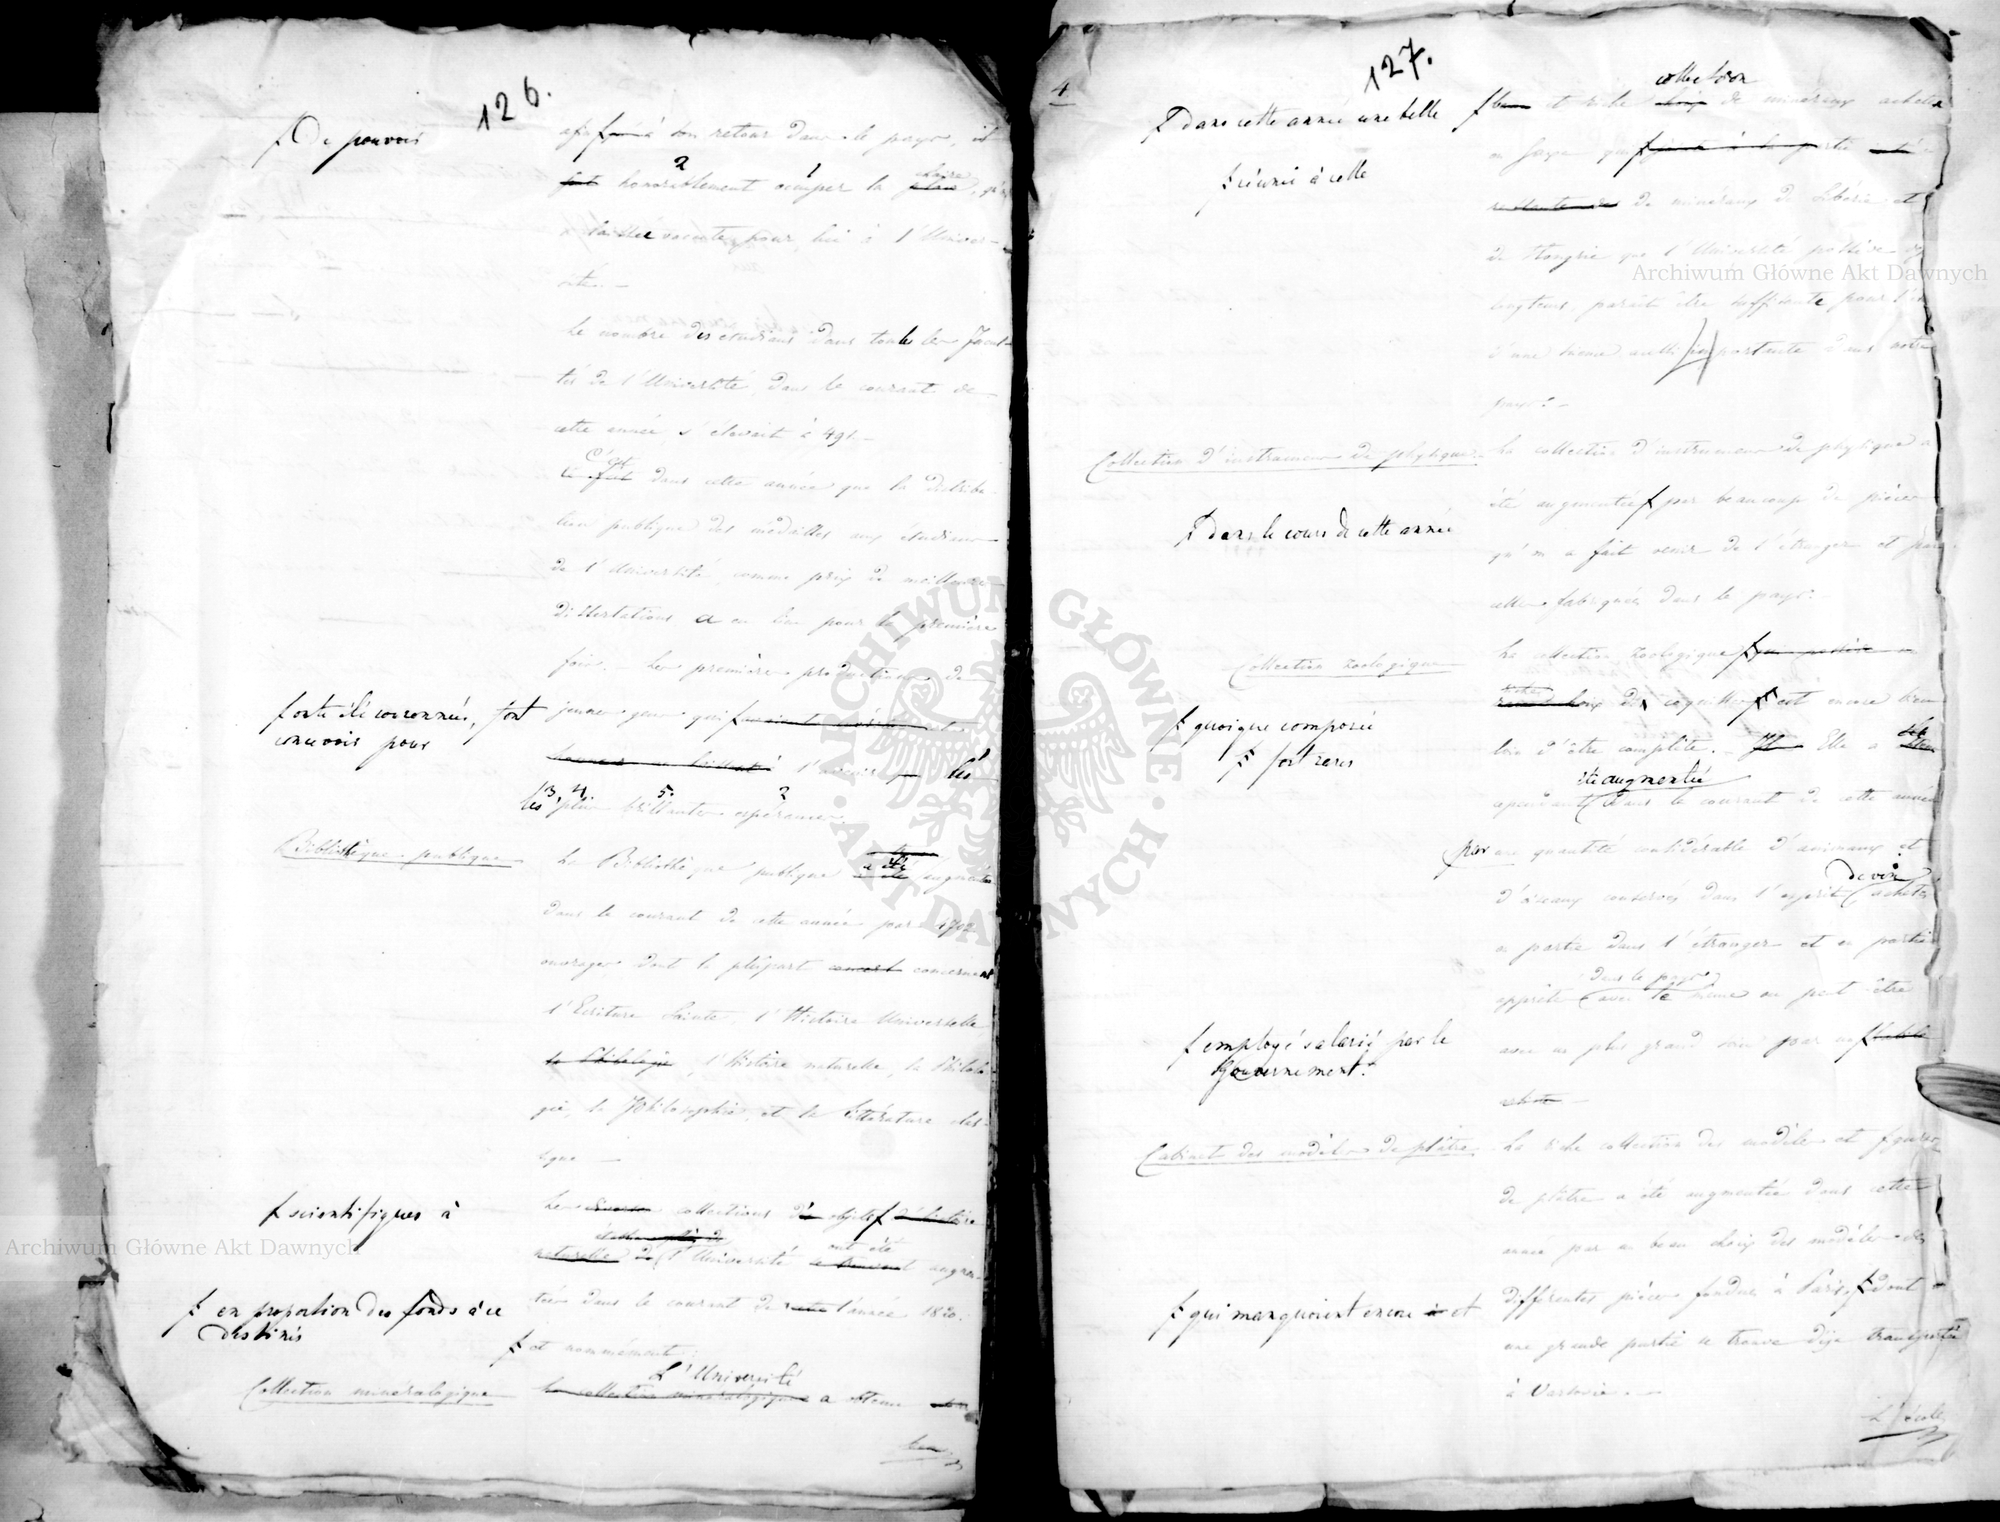 126.
Ɨ De pouvoir
afin Ɨ à son retour dans le pays, il
fut honorablement occuper la place chaire, qu'on
a laissée vacante pour lui à l'Univer-
sité. —
Le nombre des etudians dans toutes les Facul-
tés de l'Université, dans le courant de
cette année, s'élevait à 491 —
Ce fut C'est dans cette année que la distribu-
tion publique des médailles aux étudians
de l'Université, comme prix de meilleures
dissertations a eu lieu pour la première
fois. — Les premières productions de
Ɨ ont été couronnées, font
concevoir pour
jeunes gens qui Ɨ
l'avenir les
les plus brillantes espérances.
Bibliothèque publique
La Bibliothèque publique a été augmentée
dans le courant de cette année par 4702
ouvrages dont la plupart concernent
l'Ecriture Sainte, l'Histoire Universelle
la Philologie, l'Histoire naturelle, la Philolo-
gie, la Philosophie, et la littérature clas-
sique —
Ɨ scientifiques à
Les diverses collections de objets Ɨ d'histoire
naturelle de l'Université ont été augmen-
tées dans le courant de cette l'année 1820.
Ɨ en proportion des fonds à ce
destinés
Ɨ et nommément:
Collection minéralogique
La collection minéralogique L'Université a obtenu
4
127.
Ɨ Dans cette année une belle
Ɨ et riche collection de minéraux achetée
en Saxe qui Ɨ jointe à la partie
Ɨ réunie à cette
de minéraux de Sibérie et
de Hongrie que l'Université possède de
longtems, parait être suffisante pour l'
d'une science aussi importante dans notre
pays. —
Collection d'instrumens de physique.
La collection d'instrumens de physique a
été augmentée Ɨ par beaucoup de pièces
Ɨ Dans le cours de cette année
qu'on a fait venir de l'étranger et par
celles fabriquées dans le pays. —
Collection zoologique
La collection zoologique Ɨ
de coquilles Ɨ est encore bien
Ɨ quoique composée
Ɨ fort rares
loin d'être complète. — Elle a
été augmentée
cependant dans le courant de cette année
par une quantité considérable d'animaux et
d'oiseaux conservés dans l'esprit de vin achetés
en partie dans l'étranger et en partie
dans le pays
apprêtés avec le même ou peut-être
avec un plus grand soin par un Ɨ habile
Ɨ employé salarié par le
Gouvernement.
Cabinet des modèles de plâtre
La riche collection des modèles et figures
de plâtre a été augmentée dans cette
année par un beau choix des modèles de
différentes pièces fondues à Paris, Ɨ dont
Ɨ qui manquoient encore à et
une grande partie se trouve déja transportée
à Varsovie. —
L'école
Archiwum Główne Akt Dawnych
Archiwum Główne Akt Dawnych
ARCHIWUM GŁÓWNE AKT DAWNYCH